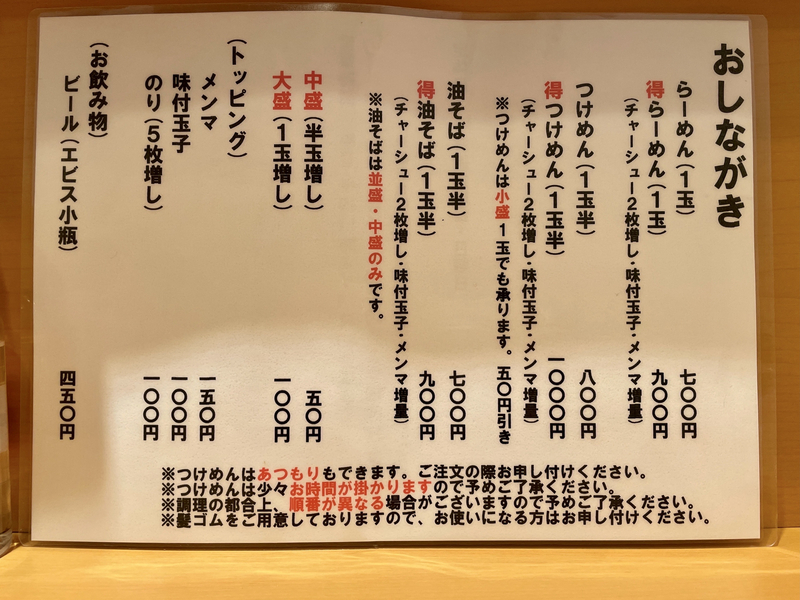 おしながき
らーめん（１玉） 七〇〇円
得らーめん（１玉） 九〇〇円
（チャーシュー２枚増し・味付玉子・メンマ増量）
つけめん（１玉半） 八〇〇円
得つけめん（１玉半） 一〇〇〇円
（チャーシュー２枚増し・味付玉子・メンマ増量）
※つけめんは小盛１玉でも承ります。五〇円引き
油そば（１玉半） 七〇〇円
得油そば（１玉半） 九〇〇円
（チャーシュー２枚増し・味付玉子・メンマ増量）
※油そばは並盛・中盛のみです。
中盛（半玉増し） 五〇円
大盛（１玉増し） 一〇〇円
（トッピング）
メンマ 一五〇円
味付玉子 一〇〇円
のり（５枚増し） 一〇〇円
（お飲み物）
ビール（エビス小瓶） 四五〇円
※つけめんはあつもりもできます。ご注文の際お申し付けください。
※つけめんは少々お時間が掛かりますので予めご了承ください。
※調理の都合上、順番が異なる場合がございますので予めご了承ください。
※髪ゴムをご用意しておりますので、お使いになる方はお申し付けください。